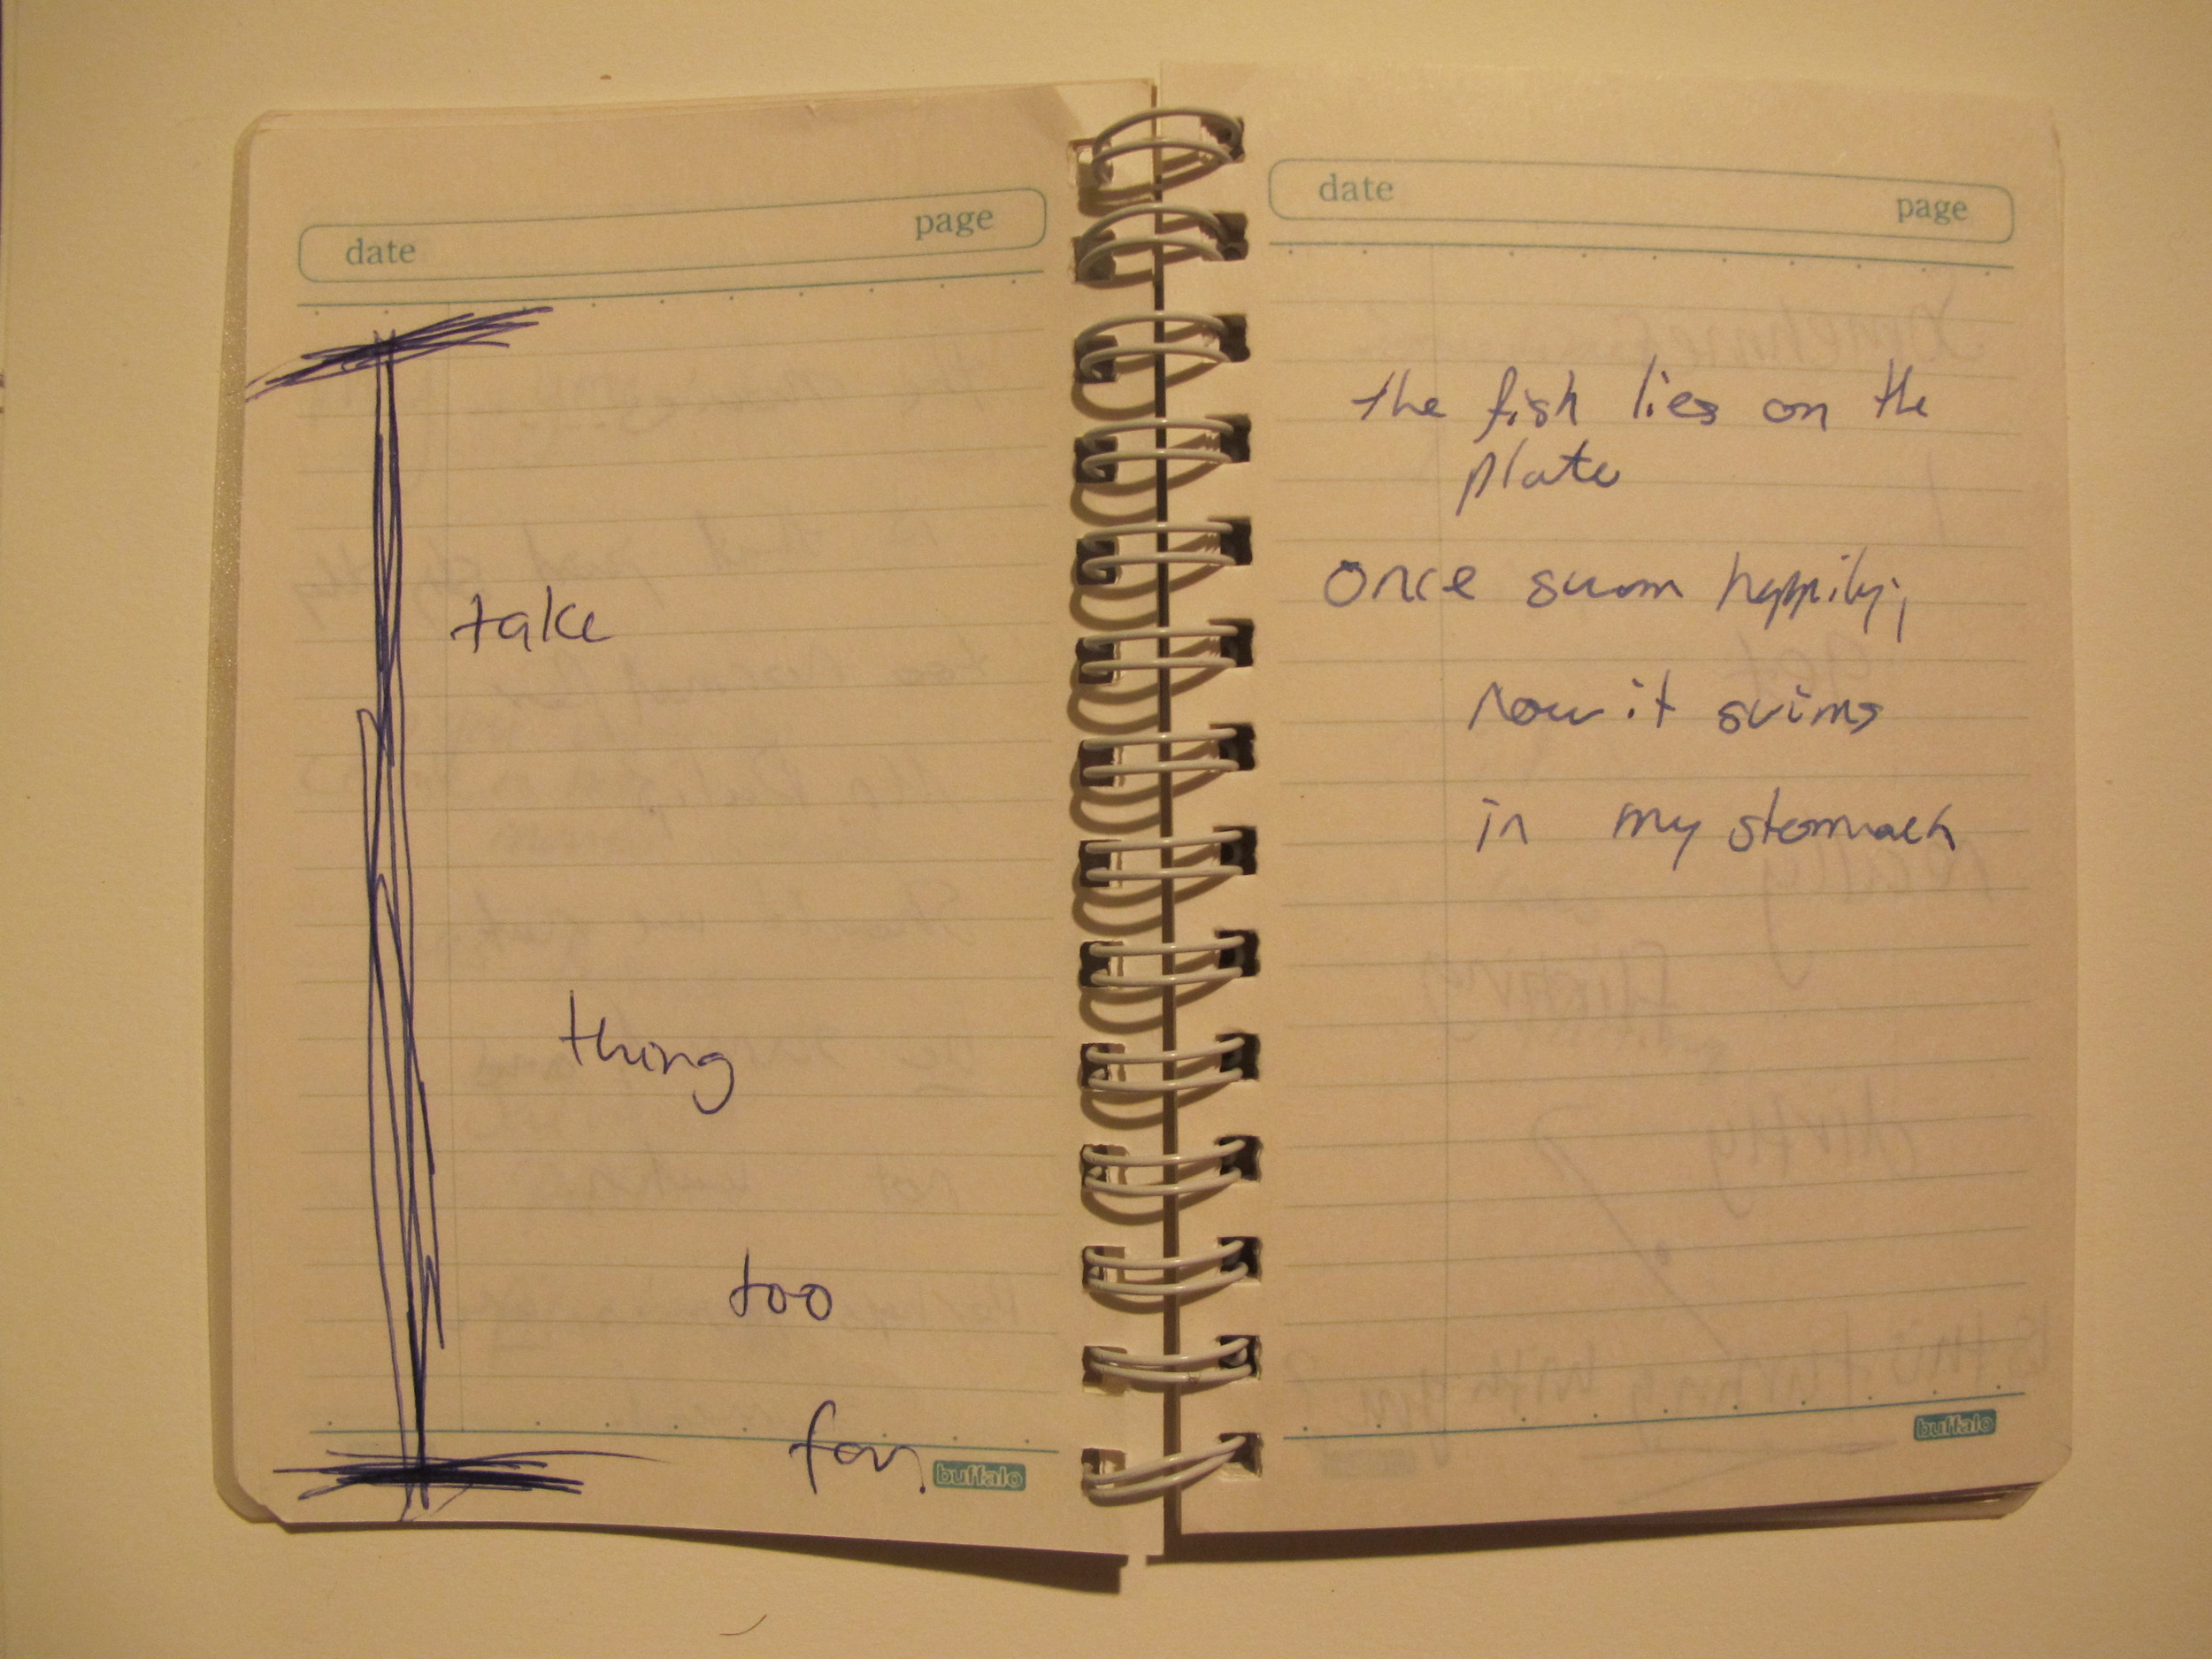 date page
I
take
thing
too
far.
buffalo
date page
the fish lies on the
plate
Once swam happily,
now it swims
in my stomach
buffalo